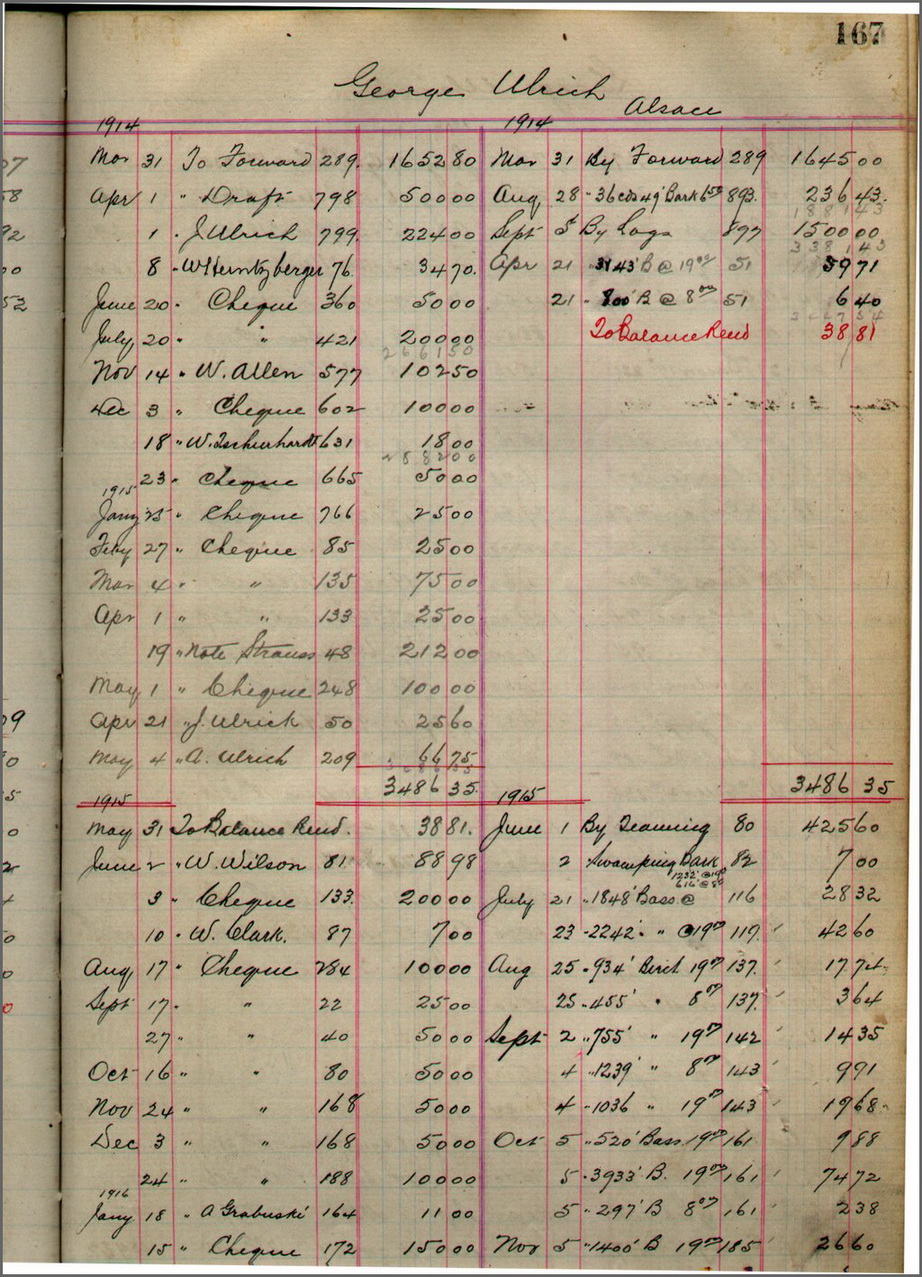 167
George Ulrich
Alsace
1914 1914
Mar 31 To Forward 289. 1652 80 Mar 31 By Forward 289 1645 00
Apr 1 " Draft 798 500 00 Aug 28 " 36 cds 49' Bark 893. 236 43.
188143
1 " J Ulrich 799. 224 00 Sept 5 By Logs 877 1500 00
338143
8 " W Herntzberger 76. 34 70. Apr 21 " 3143' B @ 19 00 51 59 71
June 20 " Cheque 360 50 00 21 " 800' B @ 8 00 51 6 40
July 20 " " 421 200 00 To Balance Rend 38 81
266150
Nov 14 " W. Allen 577 102 50
Dec 3 " Cheque 602 100 00
18 " W. 631 18 00
288200
23 " Cheque 665 50 00
1915
Jany 25 " Cheque 766 25 00
Feby 27 " Cheque 85 25 00
Mar 4 " " 135 75 00
Apr 1 " " 133 25 00
19 " Note Strauss 48 212 00
May 1 " Cheque 248 100 00
Apr 21 " J. Ulrich 50 25 60
May 4 " A. Ulrich 209 66 75
3486 35. 3486 35
1915 1915
May 31 To Balance Rend. 38 81. June 1 By Teaming 80 425 60
June 2 " W. Wilson 81 88 98 2 Swamping Bark 82 7 00
1232' @ 19 00
616' @ 8 00
3 " Cheque 133. 200 00 July 21 " 1848' Bass @ 116 28 32
10 " W. Clark. 87 7 00 23 " 2242' " @ 19 00 117. 42 60
Aug 17 " Cheque 284 100 00 Aug 25 " 934' Birch 19 00 137. 17 74
Sept 17 " " 22 25 00 25 " 455' " 8 00 137. 3 64
27 " " 40 50 00 Sept 2 " 755' " 19 00 142 14 35
Oct 16 " " 80 50 00 4 " 1239' " 8 00 143 9 91
Nov 24 " " 168 50 00 4 " 1036 " 19 00 143 19 68
Dec 3 " " 168 50 00 Oct 5 " 520' Bass 19 00 161 9 88
24 " " 188 100 00 5 " 3933' B. 19 00 161 74 72
1916
Jany 18 " A Grabuski 164 11 00 5 " 297' B 8 00 161 2 38
15 " Cheque 172 150 00 Nov 5 " 1400' B 19 00 185 26 60